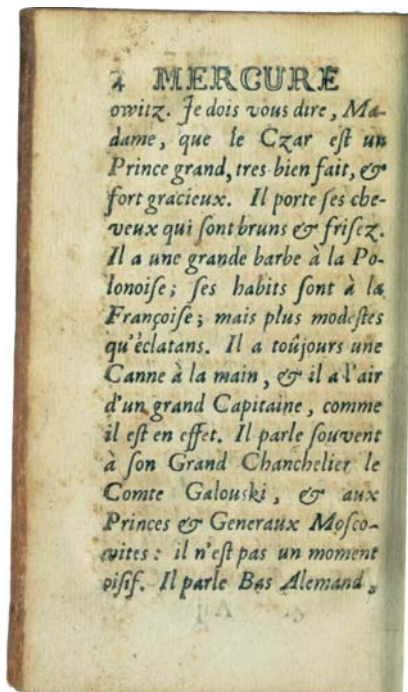 4 MERCURE
owitz. Je dois vous dire, Ma-
dame, que le Czar eſt un
Prince grand, tres-bien fait, &
fort gracieux. Il porte ſes che-
veux qui ſont bruns & friſez.
Il a une grande barbe à la Po-
lonoiſe; ſes habits ſont à la
Françoiſe; mais plus modeſtes
qu'éclatans. Il a toûjours une
Canne à la main, & il a l'air
d'un grand Capitaine, comme
il eſt en effet. Il parle ſouvent
à ſon Grand Chanchelier le
Comte Galouski, & aux
Princes & Generaux Moſco-
vites: il n'eſt pas un moment
oiſif. Il parle Bas Alemand,